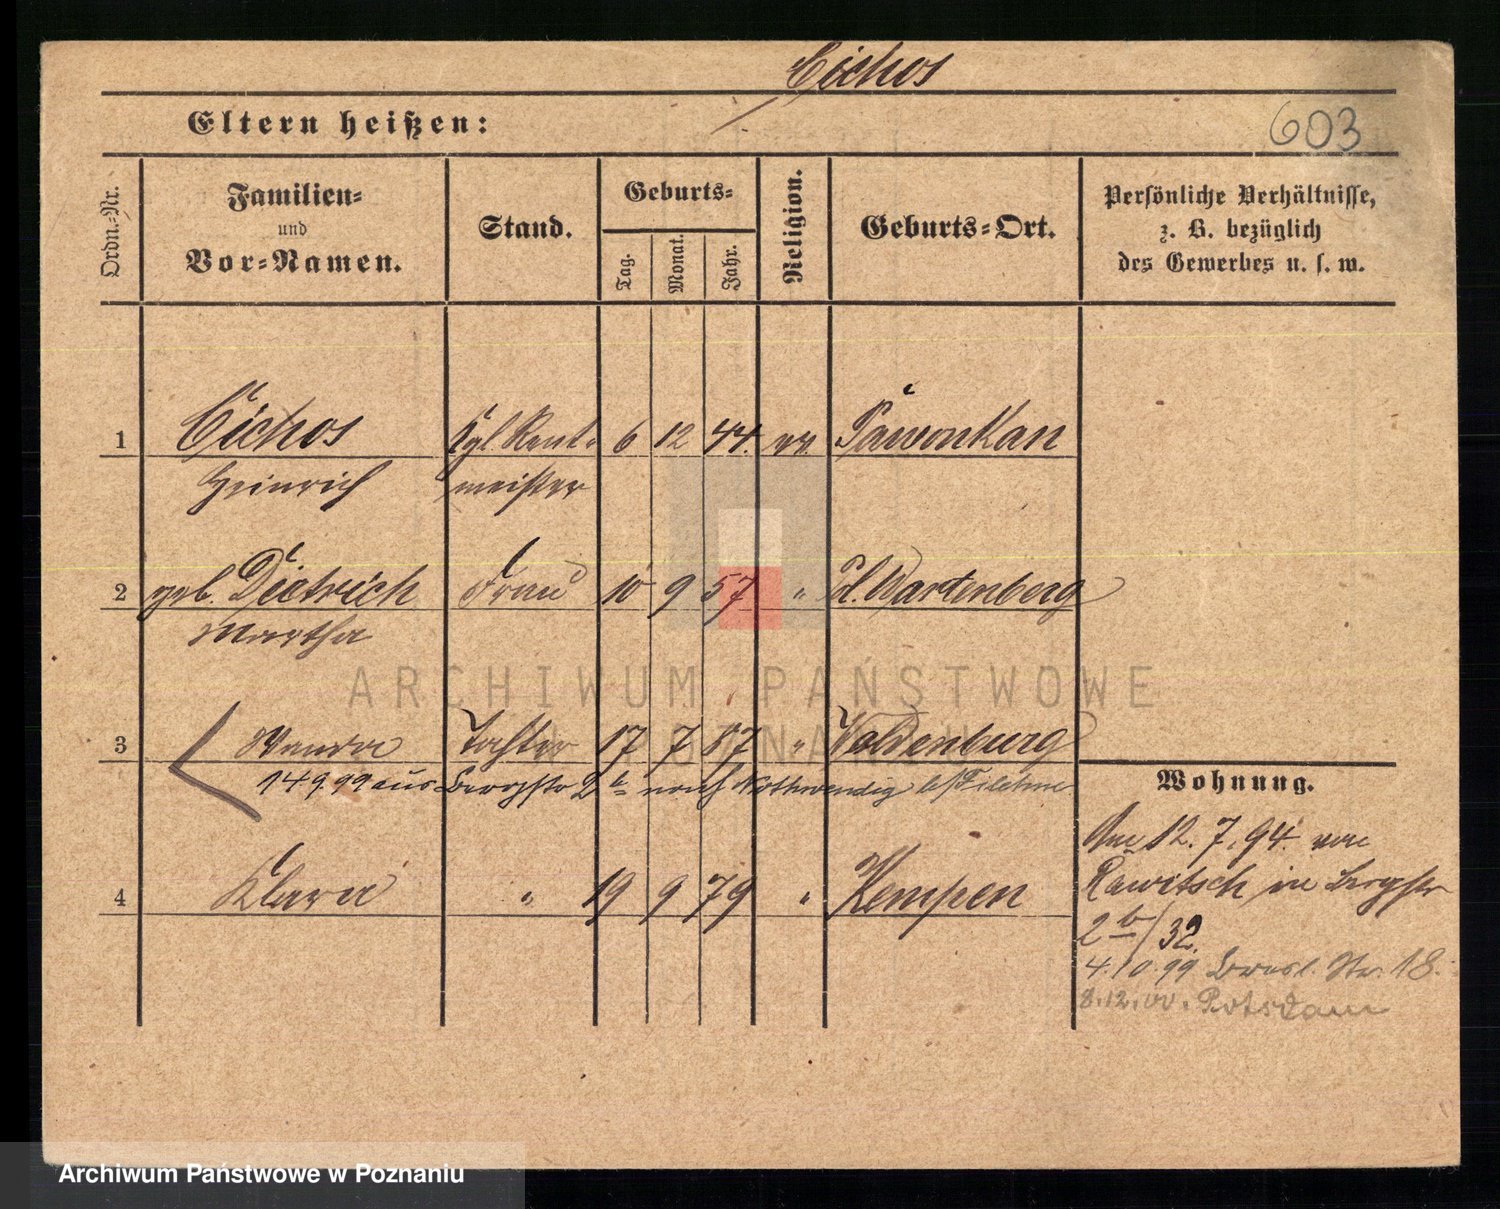 Cichos
Eltern heißen:
603
Ordn.-Nr.
Familien-
und
Vor-Namen.
Stand.
Geburts-
Tag.
Monat.
Jahr.
Religion.
Geburts-Ort.
Persönliche Verhältnisse,
z. B. bezüglich
des Gewerbes u. s. w.
1 Cichos Kgl. Rent- 6 12 44. ev. Pawonkau
Heinrich meister
2 geb. Dietrich Frau 10 9 57 " Pl. Wartenberg
Martha
ARCHIWUM PAŃSTWOWE
W POZNANIU
3 Wanda Tochter 17 7 87 " Woldenburg
14 9 99 aus Bergstr 2 b nach Nothwendig b/ Filehne
Wohnung.
Am 12. 7. 94. von
Rawitsch in Bergstr
2 b/32.
4 Klara " 19 9 79 " Kempen
4.10.99 Bresl. Str. 18.
8.12.00. Potsdam
Archiwum Państwowe w Poznaniu